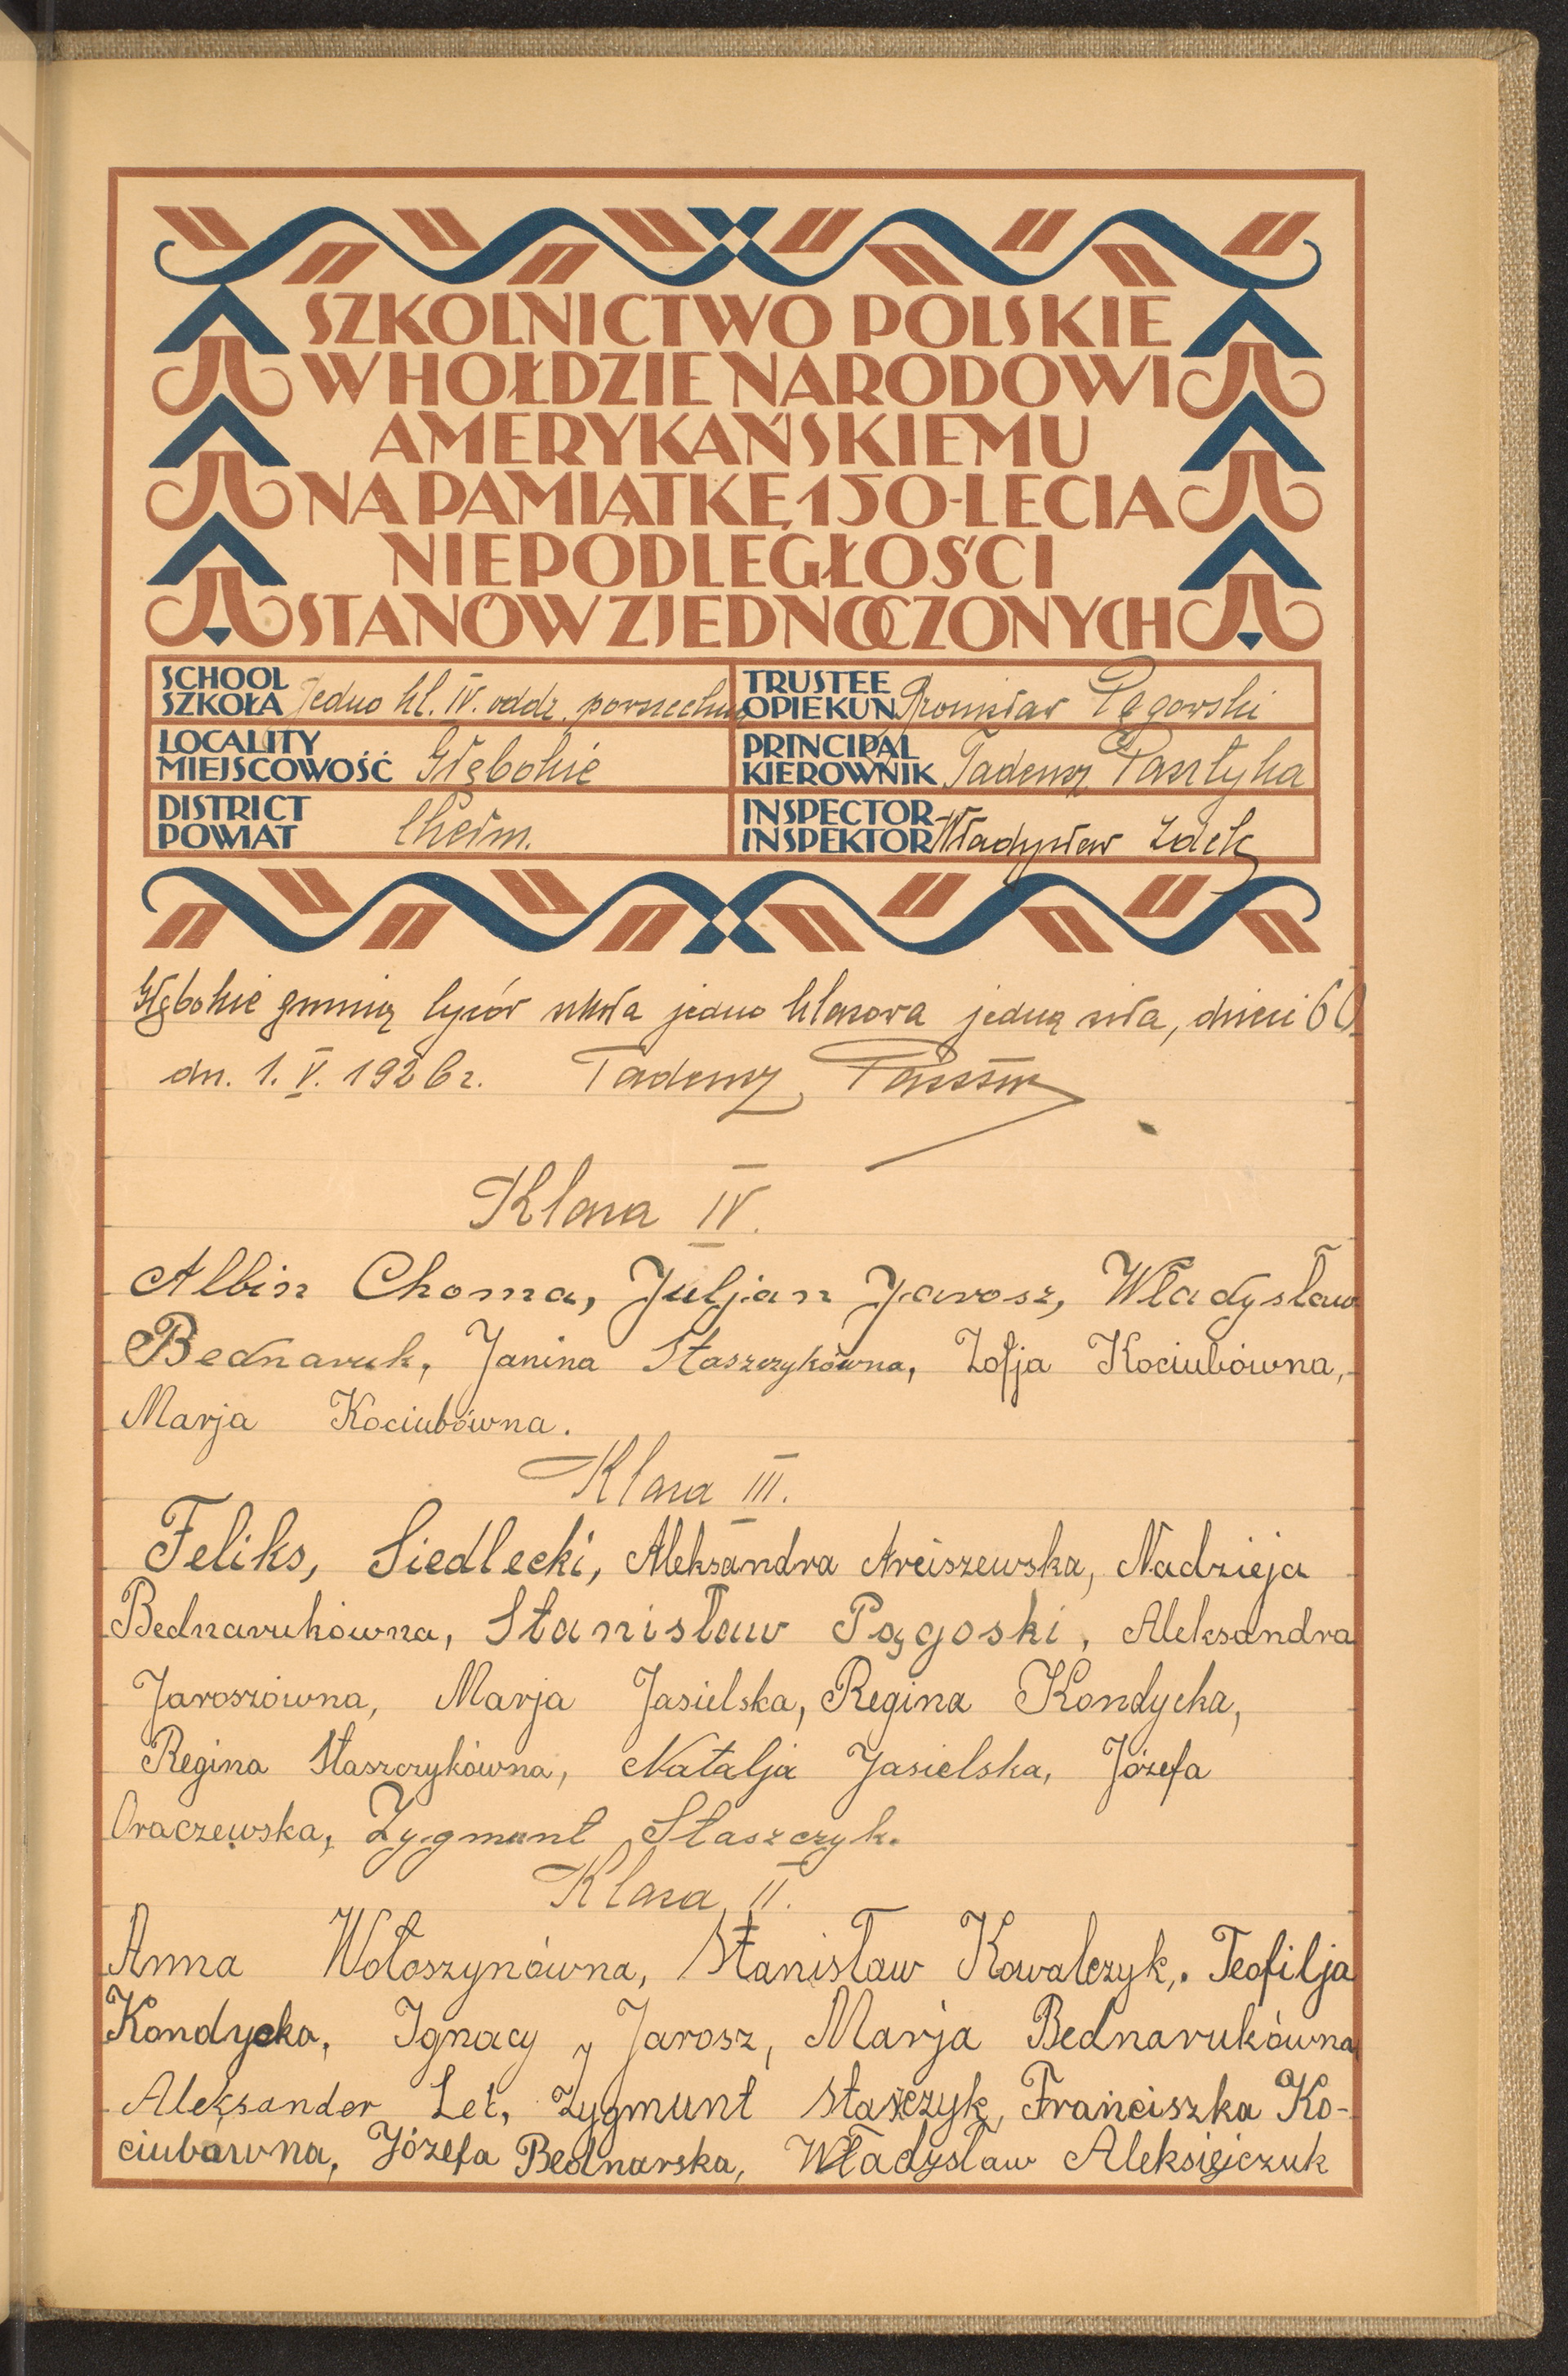 SZKOLNICTWO POLSKIE
W HOŁDZIE NARODOWI
AMERYKAŃSKIEMU
NA PAMIĄTKĘ 150-LECIA
NIEPODLEGŁOŚCI
STANÓW ZJEDNOCZONYCH
SCHOOL
SZKOŁA Jedno kl. IV. oddz. powszechna
TRUSTEE
OPIEKUN Bronisław Pągowski
LOCALITY
MIEJSCOWOŚĆ Głębokie
PRINCIPAL
KIEROWNIK Tadeusz
DISTRICT
POWIAT Chełm.
INSPECTOR
INSPEKTOR Władysław
Głębokie gminią Cyców szkoła jedno klasowa jedną siła, dzieci 60
dn. 1. V. 1926 r. Tadeusz
Klasa IV.
Albin Choma, Juljan Jarosz, Władysław
Bednaruk, Janina Staszczykówna, Zofja Kociubówna,
Marja Kociubówna.
Klasa III.
Feliks, Siedlecki, Aleksandra Arciszewska, Nadzieja
Bednarukówna, Stanisław Pągoski, Aleksandra
Jaroszówna, Marja Jasielska, Regina Kondycka,
Regina Staszczykówna, Natalja Jasielska, Józefa
Oraczewska, Zygmunt Staszczyk.
Klasa II.
Anna Wołoszynówna, Stanisław Kowalczyk,. Teofilja
Kondycka, Ignacy Jarosz, Marja Bednarukówna
Aleksander Let, Zygmunt Staszczyk, Franciszka Ko-
ciubówna, Józefa Bednarska, Władysław Aleksiejczuk